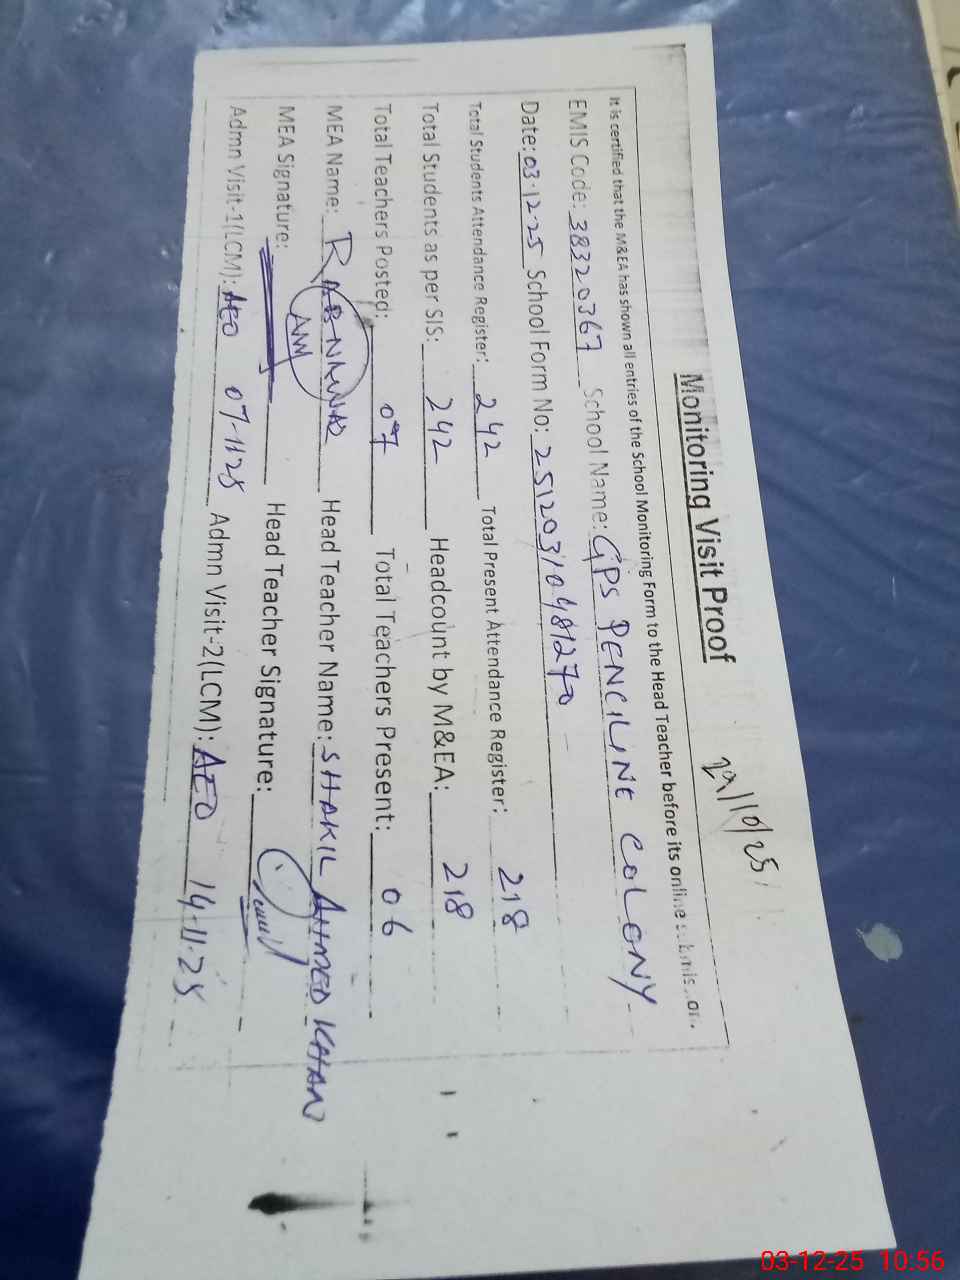 Monitoring Visit Proof 29/10/25
It is certified that the M&EA has shown all entries of the School Monitoring Form to the Head Teacher before its online
EMIS Code: 38320367 School Name: GPS PENCILINE COLONY
Date: 03.12.25 School Form No: 25120310481270
Total Students Attendance Register: 242 Total Present Attendance Register: 218
Total Students as per SIS: 242 Headcount by M&EA: 218
Total Teachers Posted: 07 Total Teachers Present: 06
MEA Name: RAB NAWAZ Head Teacher Name: SHAKIL AHMED KHAN
MEA Signature: Head Teacher Signature:
Admn Visit-1(LCM): AEO 07-11-25 Admn Visit-2(LCM): AEO 14-11-25
03-12-25 10:56